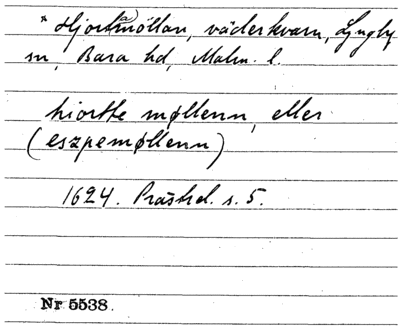 * Hjortamöllan, väderkvarn, Lyngby
sn, Bara hd, Malm. l.
hiortte møllenn, eller
(eszpemøllenn)
1624. Prästrel. s. 5.
Nr 5538.